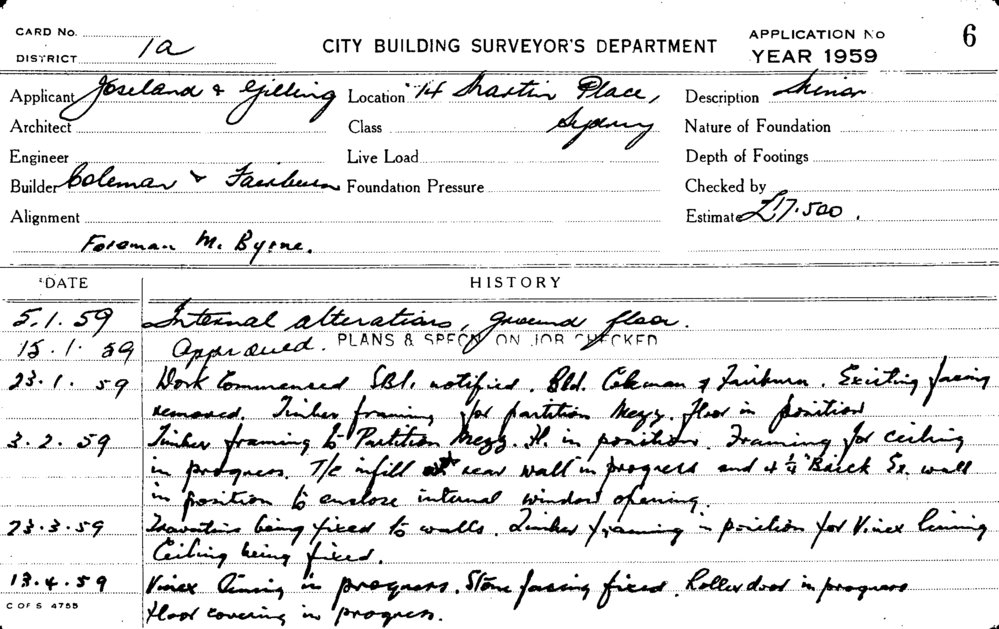 CARD No.
DISTRICT 1a
CITY BUILDING SURVEYOR'S DEPARTMENT
APPLICATION No 6
YEAR 1959
Applicant Joseland & Gilling Location 14 Martin Place, Description Minor
Architect Class Sydney Nature of Foundation
Engineer Live Load Depth of Footings
Builder Coleman & Fairburn Foundation Pressure Checked by
Alignment Estimate £17.500.
Foreman M. Byrne.
DATE HISTORY
5.1.59 Internal alterations, ground floor.
15.1.59 Approved. PLANS & SPECN ON JOB CHECKED
23.1.59 Work Commenced SBI. notified. Bld. Coleman & Fairburn. Existing facing
removed. Timber framing for partition Mezz. floor in position
3.2.59 Timber framing to Partition Mezz. Fl. in position. Framing for ceiling
in progress. T/c infill rear wall in progress and 4½" Brick wall
in position to enclose internal window opening.
23.3.59 Travertine being fixed to walls. Timber framing in position for Vinex lining
Ceiling being fixed.
13.4.59 Vinex lining in progress. Stone facing fixed. Roller door in progress
Floor covering in progress.
C OF S 4755